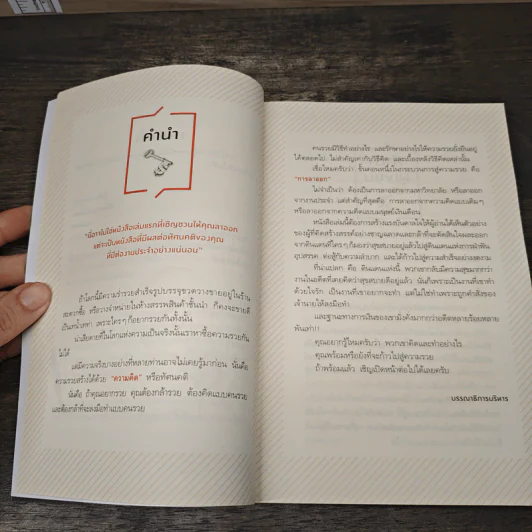 คำนำ
"นี่อาจไม่ใช่หนังสือเล่มแรกที่เชิญชวนให้คุณลาออก
แต่จะเป็นหนังสือที่มีผลต่อทัศนคติของคุณ
ที่มีต่องานประจำอย่างแน่นอน"
ถ้าโลกนี้มีความร่ำรวยสำเร็จรูปบรรจุขวดวางขายอยู่ในร้าน
สะดวกซื้อ หรือวางจำหน่ายในห้างสรรพสินค้าชั้นนำ ก็คงจะขายดี
เป็นเทน้ำเทท่า เพราะใครๆ ก็อยากรวยกันทั้งนั้น
น่าเสียดายที่ในโลกแห่งความเป็นจริงนั้นเราหาซื้อความรวยกัน
ไม่ได้
แต่มีความจริงบางอย่างที่หลายท่านอาจไม่เคยรู้มาก่อน นั่นคือ
ความรวยสร้างได้ด้วย "ความคิด" หรือทัศนคติ
นั่นคือ ถ้าคุณอยากรวย คุณต้องกล้ารวย ต้องคิดแบบคนรวย
และต้องกล้าที่จะลงมือทำแบบคนรวย
คนรวยมีวิธีทำอย่างไร และรักษาอย่างไรให้ความรวยยั่งยืนอยู่
ได้ตลอดไป ไม่สำคัญเท่ากับวิธีคิด และเบื้องหลังวิธีคิดเหล่านั้น
เชื่อไหมครับว่า ขั้นตอนหนึ่งในกระบวนการสู่ความรวย คือ
"การลาออก"
ไม่จำเป็นว่า ต้องเป็นการลาออกจากมหาวิทยาลัย หรือลาออก
จากงานประจำ แต่สำคัญที่สุดคือ การลาออกจากความคิดแบบเดิมๆ
หรือลาออกจากความคิดแบบมนุษย์เงินเดือน
หนังสือเล่มนี้ต้องการสร้างแรงบันดาลใจให้ผู้อ่านได้เห็นตัวอย่าง
ของผู้ที่คิดสร้างสรรค์อย่างชาญฉลาดและกล้าที่จะตัดสินใจลาออก
จากดินแดนที่ใครๆ ก็มองว่าสุขสบายอยู่แล้วไปสู่ดินแดนแห่งการฝ่าฟัน
อุปสรรค ต่อสู้กับความลำบาก และได้ก้าวไปสู่ความสำเร็จอย่างงดงาม
ที่น่าแปลก คือ ดินแดนแห่งนี้ พวกเขากลับมีความสุขมากกว่า
งานในอดีตที่เคยคิดว่าสุขสบายดีอยู่แล้ว นั่นก็เพราะเป็นงานที่เขาทำ
ด้วยใจรัก เป็นงานที่เขาอยากจะทำ แต่ไม่ใช่ทำเพราะถูกคำสั่งของ
เจ้านายให้ลงมือทำ
และฐานะทางการเงินของเขามั่งคั่งมากกว่าอดีตหลายร้อยหลาย
พันเท่า!!
คุณอยากรู้ไหมครับว่า พวกเขาคิดและทำอย่างไร
คุณพร้อมหรือยังที่จะก้าวไปสู่ความรวย
ถ้าพร้อมแล้ว เชิญเปิดหน้าต่อไปได้เลยครับ
บรรณาธิการบริหาร